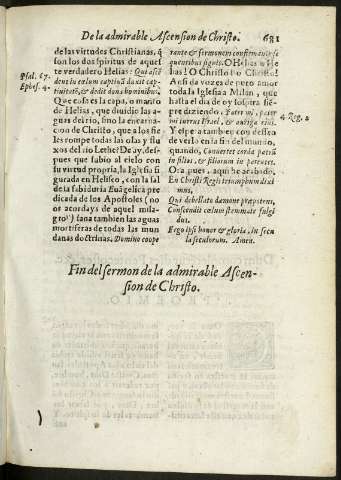 De la admirable Ascension de Christo. 681
de las virtudes Christianas, q̃
son los dos spiritus de aquel
te verdadero Helias: Qui ascẽ
dens in cælum captiuã duxit cap-
tiuitatẽ, & dedit dona hominibus.
Que cosa es la capa, o manto
de Helias, que diuidio las a-
guas del rio, sino la encarna-
cion de Christo, que a los fie-
les rompe todas las olas y flu-
xos del rio Lethe? De ay, des-
pues que subio al cielo con
su virtud propria, la Iglesia fi
gurada en Heliseo, con la sal
de la sabiduria Euãgelica pre
dicada de los Apostoles (no
os acordays de aquel mila-
gro?) sana tambien las aguas
mortiferas de todas las mun
danas doctrinas. Domino coope
Psal. 67.
Ephes. 4.
rante & sermonem confirmante se
quentibus signis. O Helias o He
lias! O Christo! o Christo!
Ansi da vozes de puro amor
toda la Iglesia a Milan, que
hasta el dia de oy suspira siẽ-
pre diziendo. Pater mi, pater
mi currus Israel, & auriga eius.
Y espera tambien con desseo
de verlo en la fin del mundo,
quando, Conuertet corda patrũ
in filios, & filiorum in parentes.
Ora pues, aqui he acabado.
En Christi Regis triumphum dixi
mus,
Qui debellato dæmone prepotens,
Conscendit cælum stemmate fulgi
dus.
Ergo ipsi honor & gloria, in secu
la seculorum. Amen.
4. Reg. 2
Fin del sermon de la admirable Ascen-
sion de Christo.